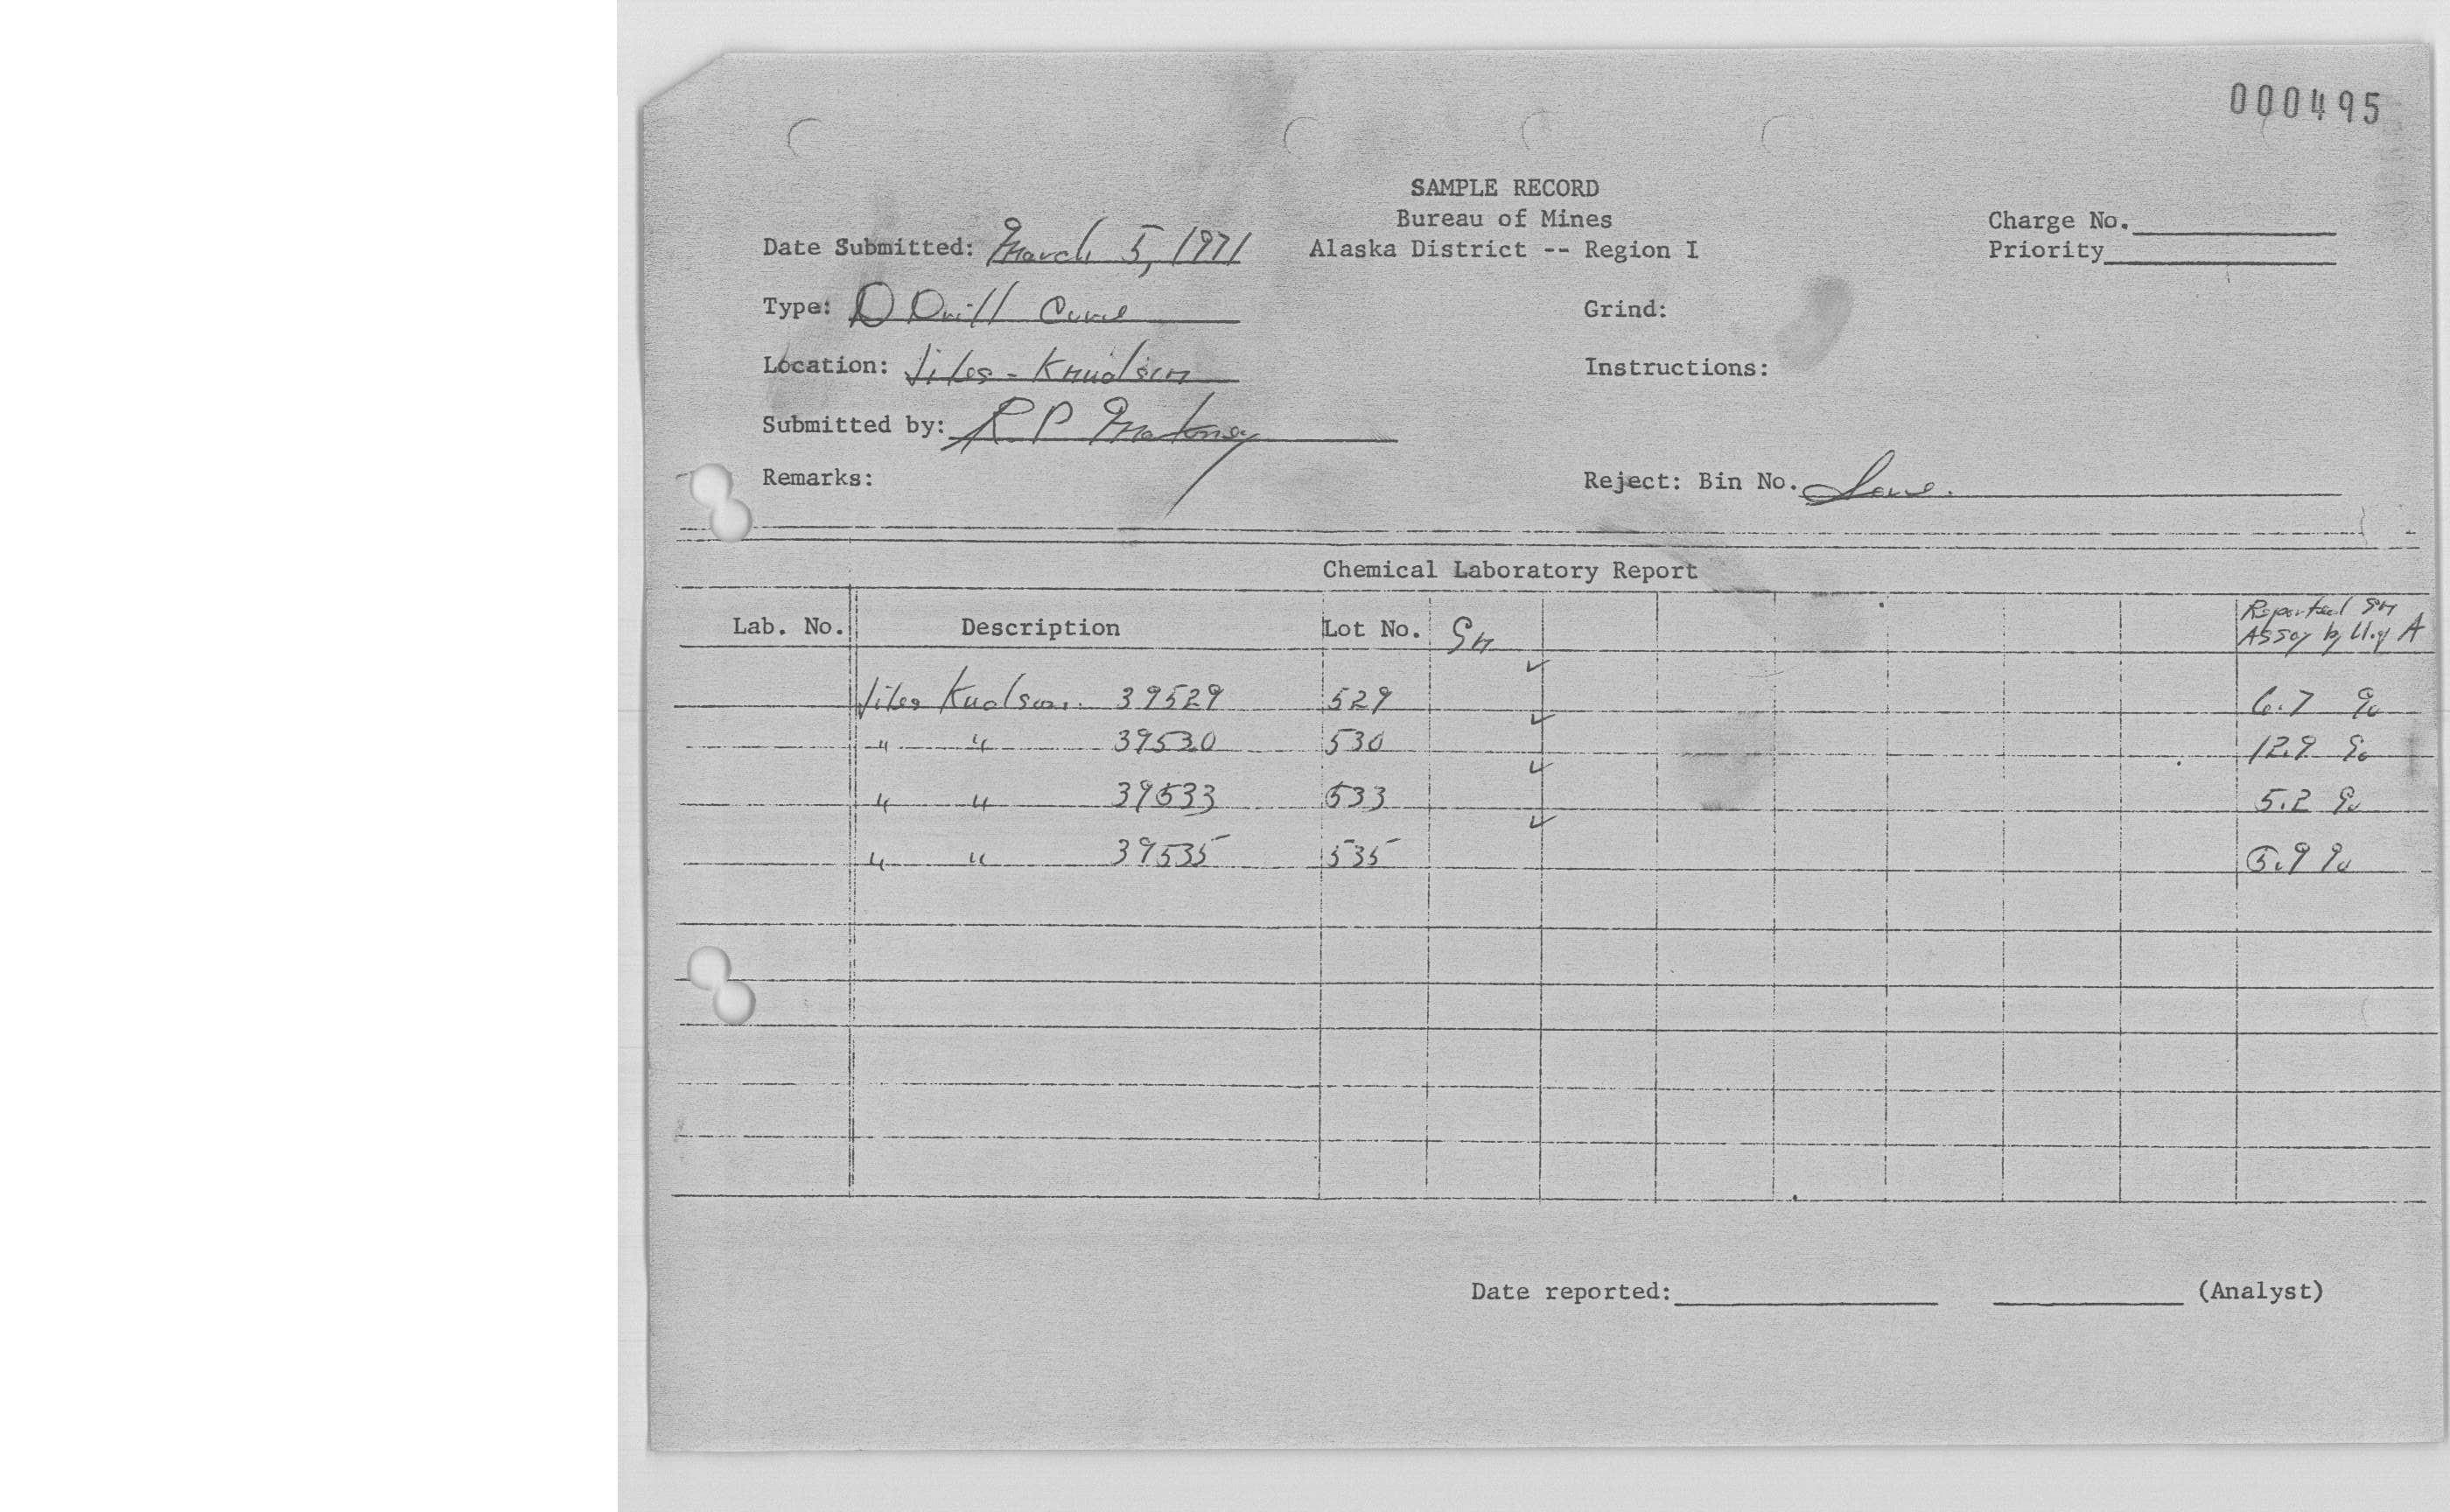 000495
SAMPLE RECORD
Bureau of Mines
Alaska District -- Region I
Charge No.
Priority
Date Submitted: March 5, 1971
Type: D Drill Core
Grind:
Location: Jiles - Knudson
Instructions:
Submitted by: R P Maloney
Remarks:
Reject: Bin No. Save.
Chemical Laboratory Report
Lab. No. Description Lot No. Sn Reported Sn
Assay by U. of A
Jiles Knudson. 39529 529 ✓ 6.7 %
" " 39530 530 ✓ 12.9 %
" " 39533 533 ✓ 5.2 %
" " 39535 535 ✓ 5.9 %
Date reported: (Analyst)